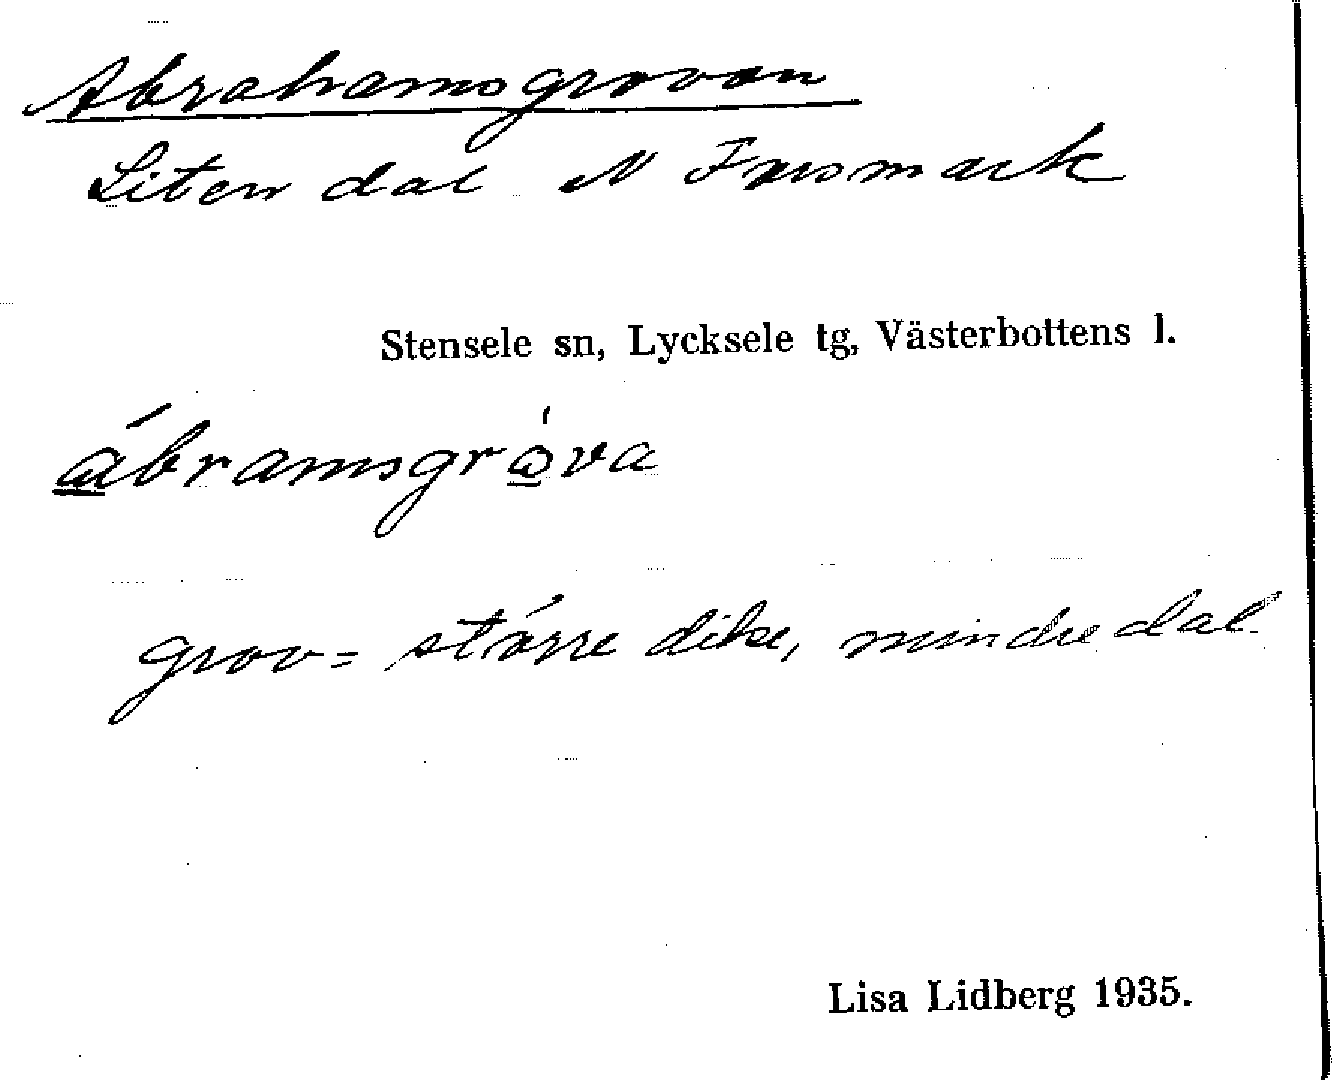 Abrahamsgrovan
Liten dal N Forsmark
Stensele sn, Lycksele tg, Västerbottens l.
ábramsgrova
grov = större dike, mindre dal.
Lisa Lidberg 1935.